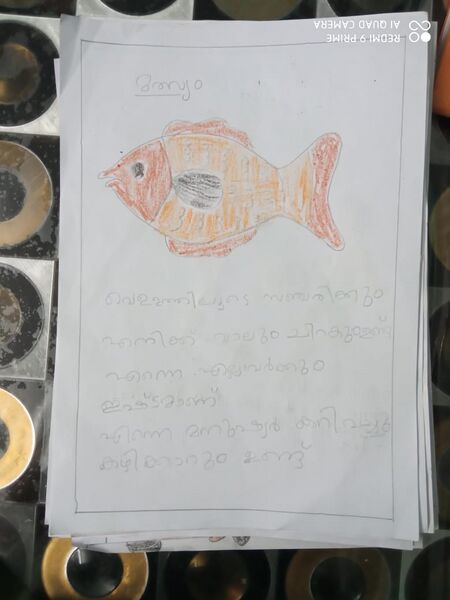 മത്സ്യം
വെള്ളത്തിലൂടെ സഞ്ചരിക്കും
എനിക്ക് വാലും ചിറകുമുണ്ട്
എന്നെ എല്ലാവർക്കും
ഇഷ്ടമാണ്
എന്നെ മനുഷ്യർ കറിവച്ചു
കഴിക്കാറും ഉണ്ട്
REDMI 9 PRIME
AI QUAD CAMERA